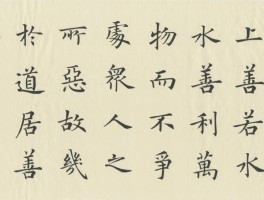 上善若水
水善利萬
物而不爭
處眾人之
所惡故幾
於道居善